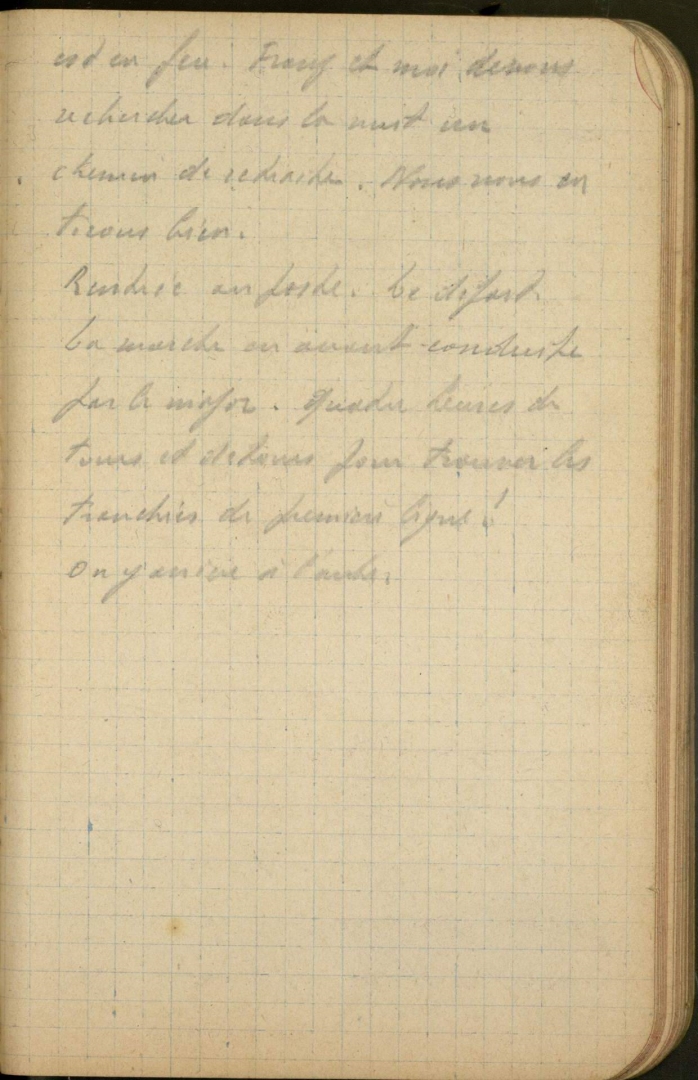 est en feu. Franz et moi devons
rechercher dans la nuit un
chemin de retraite. Nous nous en
tirons bien.
Rentrée au poste. Le départ.
La marche en avant conduite
par le major. Quatre heures de
tours et détours pour trouver les
tranchées de première ligne !
On y arrive à l'aube.